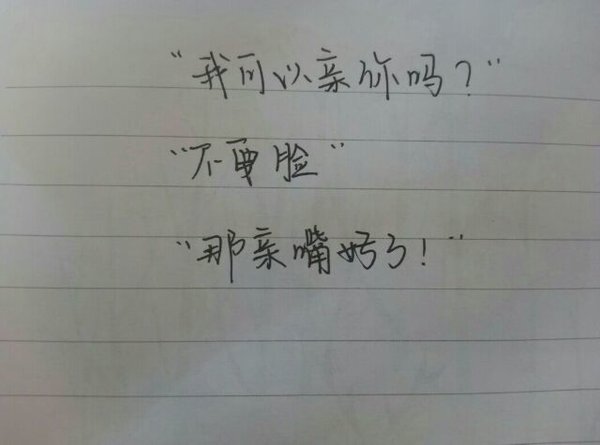 “我可以亲你吗？”
“不要脸”
“那亲嘴好了！”